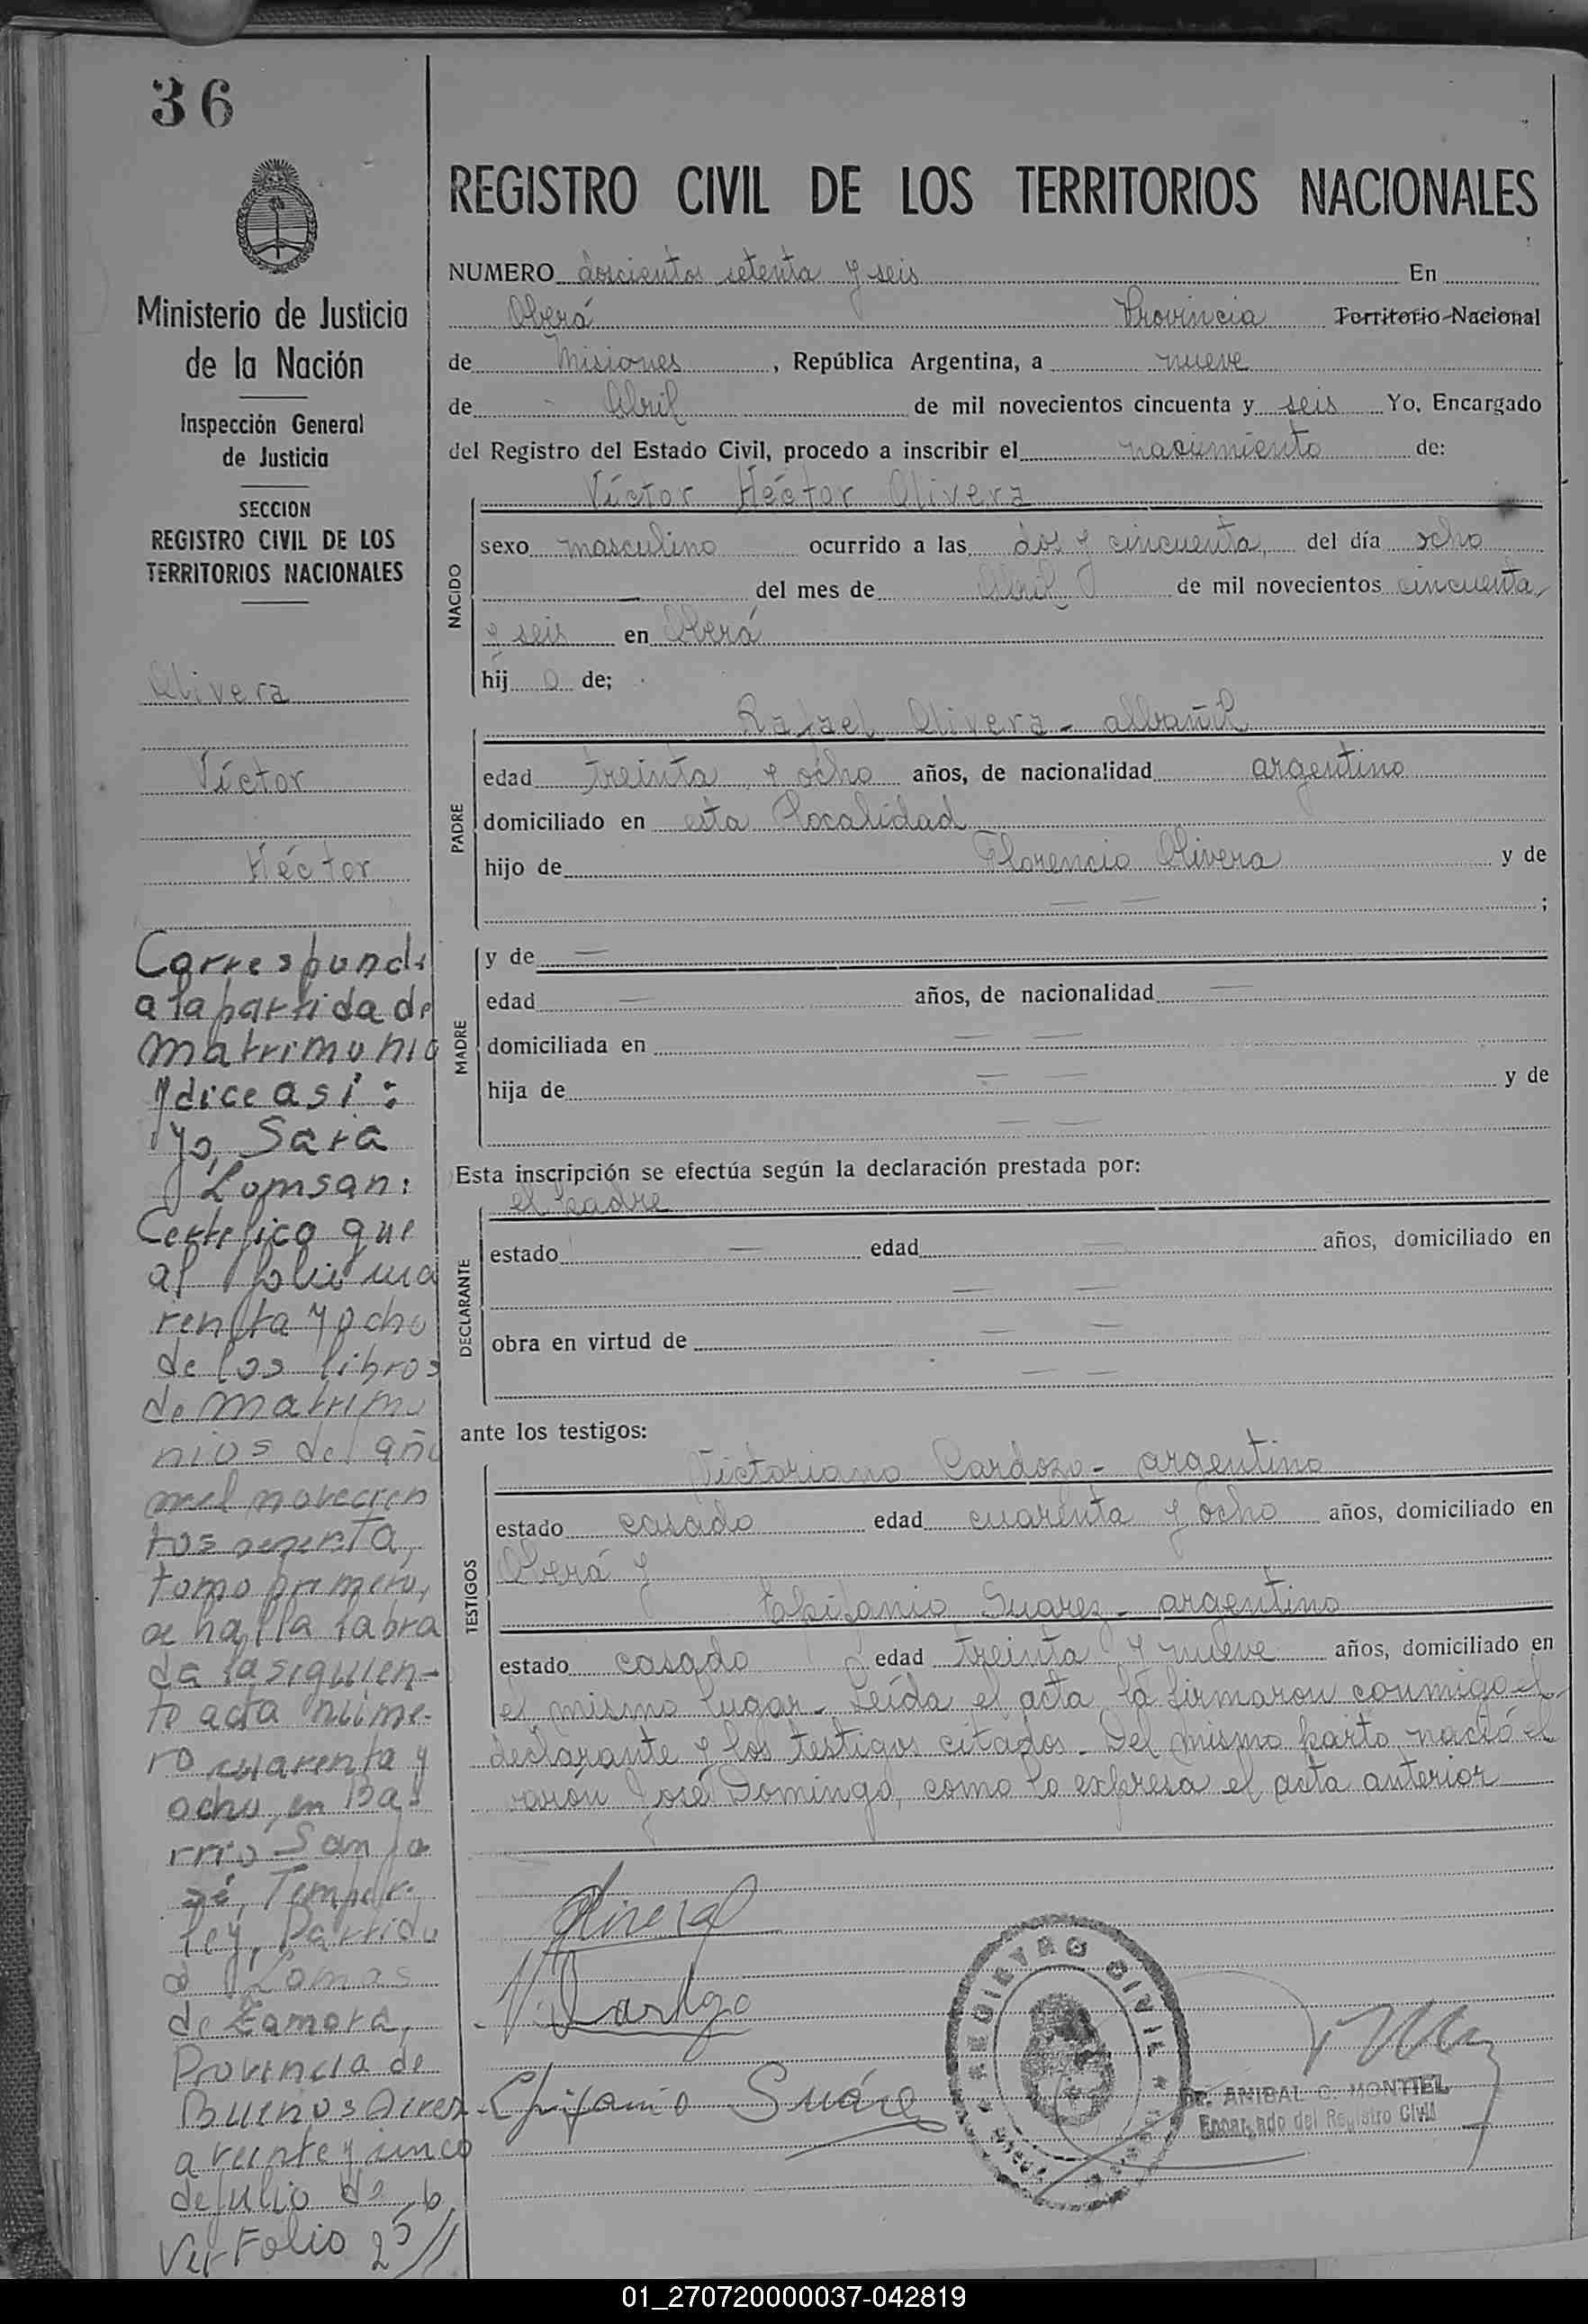 36
Ministerio de Justicia
de la Nación
Inspección General
de Justicia
SECCION
REGISTRO CIVIL DE LOS
TERRITORIOS NACIONALES
Olivera
Víctor
Héctor
Corresponde
a la partida de
matrimonio
y dice así:
Yo, Sara
Lomsan:
Certifico que
al folio cua
renta y ocho
de los libros
de matrimo
nios del año
mil novecien
tos
tomo primero,
se halla labra
da la siguien-
te acta núme-
ro cuarenta y
ocho, en Ba-
rrio San Jo
sé, Temper-
ley, Partido
de Lomas
de Zamora,
Provincia de
Buenos Aires
a veinte y cinco
de julio de
Ver Folio 25//
REGISTRO CIVIL DE LOS TERRITORIOS NACIONALES
NUMERO doscientos setenta y seis En
Oberá Provincia Territorio Nacional
de Misiones, República Argentina, a nueve
de Abril de mil novecientos cincuenta y seis Yo, Encargado
del Registro del Estado Civil, procedo a inscribir el nacimiento de:
NACIDO
Víctor Héctor Olivera
sexo masculino ocurrido a las dos y cincuenta, del día ocho
— del mes de Abril de mil novecientos cincuenta
y seis en Oberá
hij o de;
PADRE
Rafael Olivera - albañil
edad treinta y ocho años, de nacionalidad argentino
domiciliado en esta localidad
hijo de Florencio Olivera y de
— — ;
MADRE
y de —
edad — años, de nacionalidad —
domiciliada en — —
hija de — — y de
— —
Esta inscripción se efectúa según la declaración prestada por:
DECLARANTE
el padre
estado — edad — años, domiciliado en
— —
obra en virtud de — —
— —
ante los testigos:
TESTIGOS
Victoriano Cardozo - argentino
estado casado edad cuarenta y ocho años, domiciliado en
Oberá y
Epifanio Suarez - argentino
estado casado edad treinta y nueve años, domiciliado en
el mismo lugar - Leída el acta, la firmaron conmigo el
declarante y los testigos citados - Del mismo parto nació el
varón José Domingo, como lo expresa el acta anterior
Olivera
Epifanio Suárez
REGISTRO CIVIL
Dr. ANIBAL C. MONTIEL
Encargado del Registro Civil
01_270720000037-042819